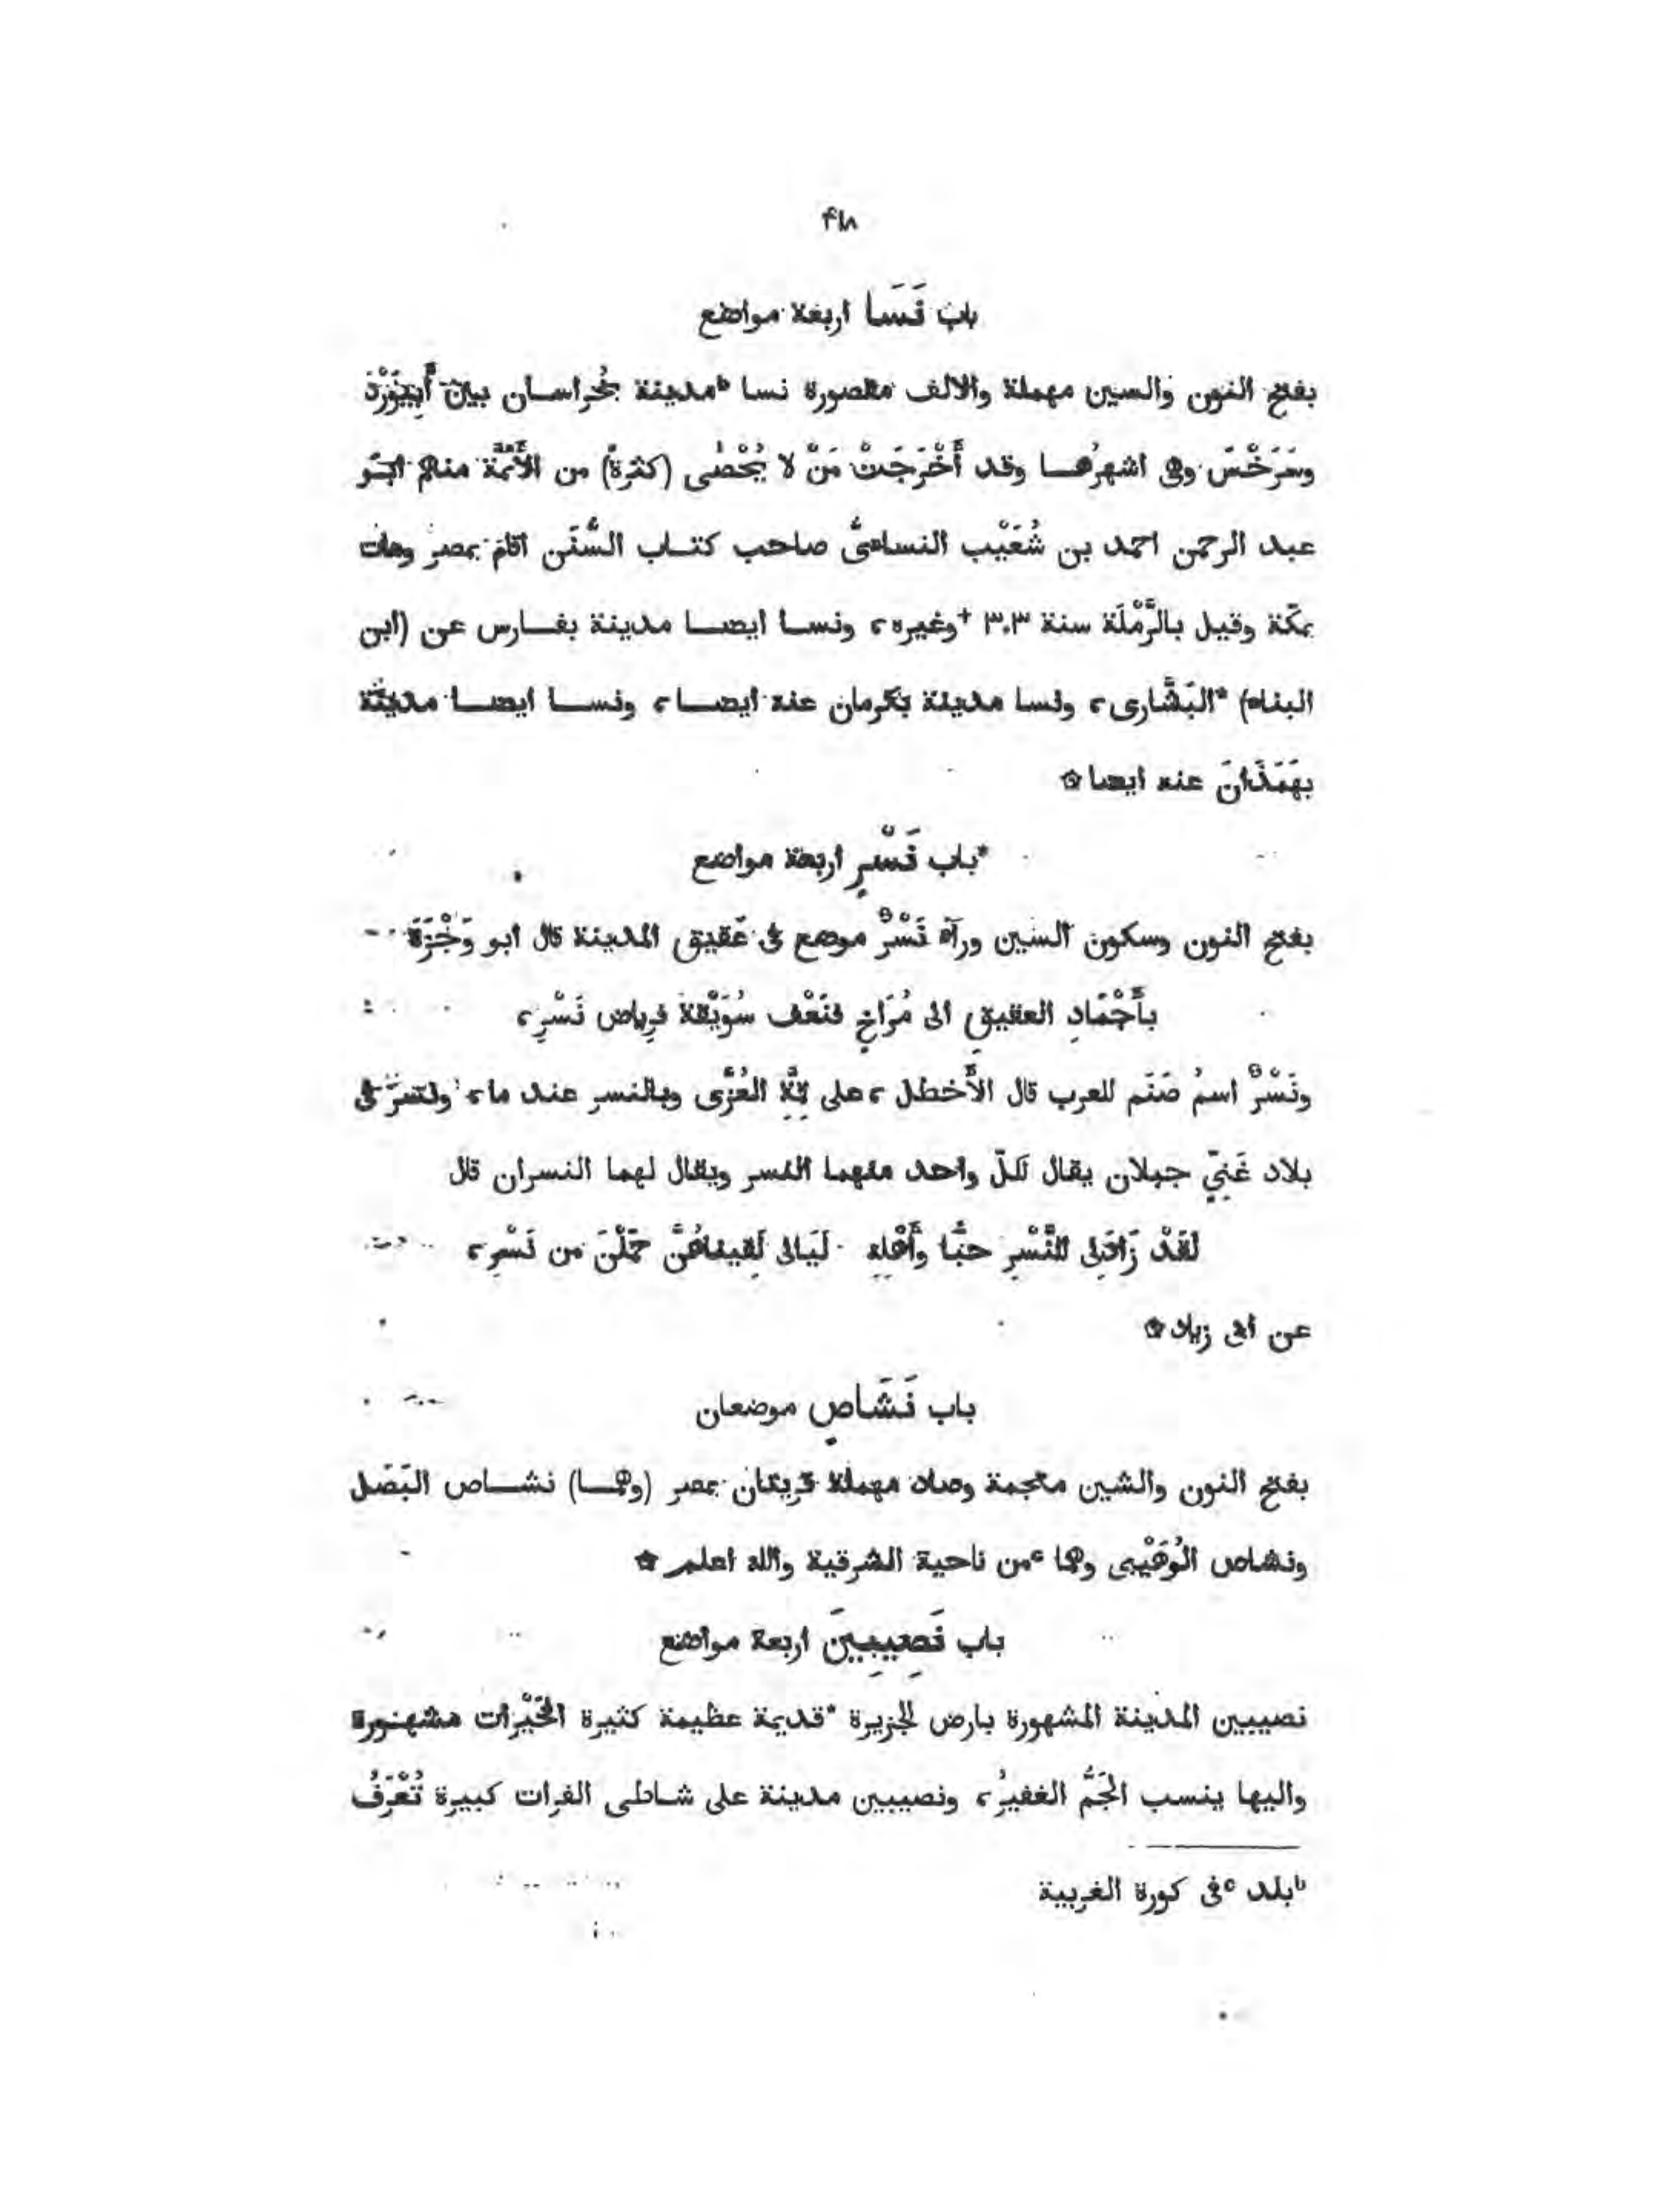 ۴۱۸
باب نَسَا اربعة مواضع
بفتح النون والسين مهملة والالف مقصورة نسا ᵇمدينة بخُراسان بين أَبِيوَرْد
وسَرَخْسَ وهى اشهرُها وقد أَخْرَجَتْ مَنْ لا يُحْصٰى (كثرةً) من الأَئمّة منهم ابو
عبد الرحمن احمد بن شُعَيْب النساءىُّ صاحب كتاب السُّنَن اقام بمصر ومات
بمكّة وقيل بالرَّمْلَة سنة ٣٠٣ +وغيره، ونسا ايضا مدينة بفارس عن (ابن
البناء) *البَشّارى، ونسا مدينة بكرمان عنه ايضا، ونسا ايضا مدينة
بهَمَذَانَ عنه ايضا۞
*باب نَسْرٍ اربعة مواضع
بفتح النون وسكون السين ورآء نَسْرٌ موضع فى عَقيق المدينة قال ابو وَجْزَةَ
بأَجْمَادِ العقيقِ الى مُرَاخٍ فنَعْف سُوَيْقَة فرِياض نَسْرِ،
ونَسْرٌ اسمُ صَنَم للعرب قال الأَخطل، على العُزَّى وبالنسر عند ما، ونسر فى
بلاد غَنِىّ جبلان يقال لكلّ واحد منهما النسر ويقال لهما النسران قال
لَقَدْ زَادَنِى للنَّسْرِ حبًّا وأَهْلِهِ لَيَالى لَقِيناهُنَّ حمّلْنَ من نَسْرِ،
عن ابى زياد۞
باب نَشَاصٍ موضعان
بفتح النون والشين معجمة وصاد مهملة قريتان بمصر (وهما) نشاص البَصَل
ونشاص الوُهَيْبى وهما ᶜمن ناحية الشرقية والله اعلم۞
باب نَصِيبِينَ اربعة مواضع
نصيبين المدينة المشهورة بارض الجزيرة *قديمة عظيمة كثيرة الخَيْرات مشهورة
واليها ينسب الجَمُّ الغفيرُ، ونصيبين مدينة على شاطى الفرات كبيرة تُعْرَفُ
ᵇبلد ᶜفى كورة الغربية